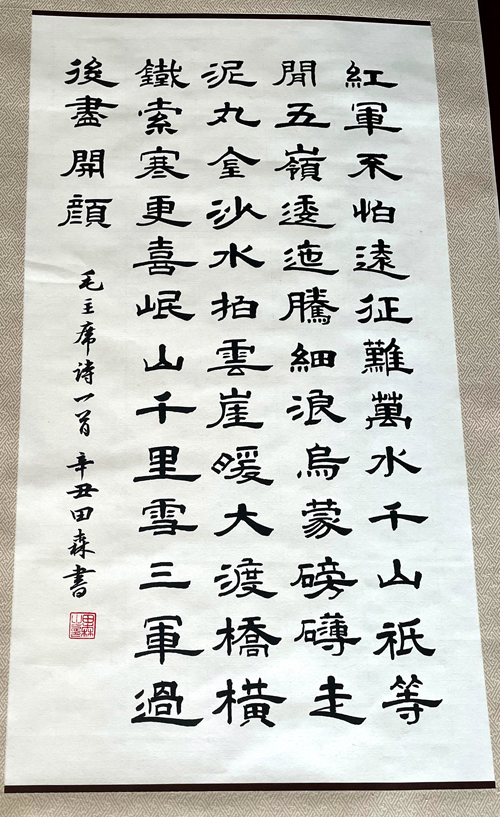 紅軍不怕遠征難萬水千山祇等
閒五嶺逶迤騰細浪烏蒙磅礴走
泥丸金沙水拍雲崖暖大渡橋橫
鐵索寒更喜岷山千里雪三軍過
後盡開顏
毛主席诗一首 辛丑田森書